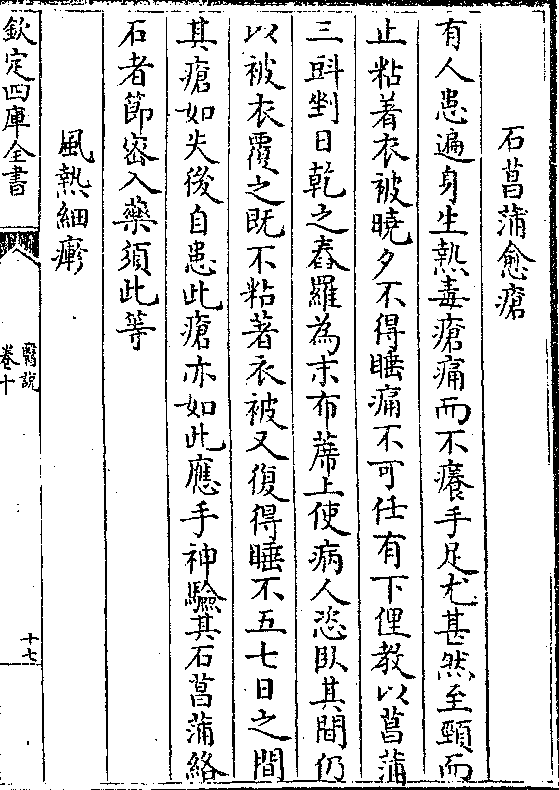 石菖蒲愈瘡
有人患遍身生熱毒瘡痛而不癢手足尤甚然至頸而
止粘着衣被曉夕不得睡痛不可任有下俚教以菖蒲
三㪷剉日乾之舂羅為末布蓆上使病人恣臥其間仍
以被衣覆之既不粘著衣被又復得睡不五七日之間
其瘡如失後自患此瘡亦如此應手神驗其石菖蒲絡
石者節密入藥須此等
風熱細疹
欽定四庫全書
醫說
卷十
十七